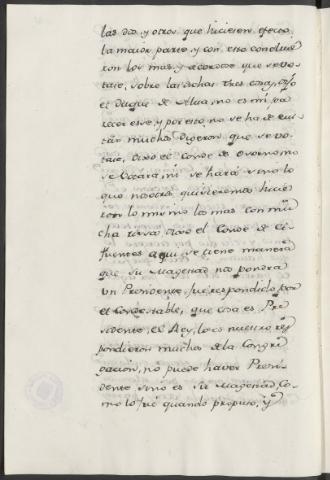 las dos, y otros que hiciesen efecto
la maior parte, y con esto concluie
ron los mas, y acordose que se vo
tase, sobre las dichas tres cosas, dijo
el Duque de Alva, no es mi pa
recer ese, y por esto no se ha de qui
tar, muchos digeron que se vo
tase, dixo el Conde de Osorno no
se votará, ni se hará sino lo
que nosotros quisieremos, hicie
ron lo mismo los mas con mu
cha risa, dixo el Conde de Ci
fuentes aqui se tiene manera
que su Magestad no pondrá
un Presidente, fue respondido por
el Condestable, que cosa es Pre
sidente, el Rey, lo es nuestro res
pondieron muchos de la Congre
gacion, no puede haver Presi
dente sino es su Magestad, Co
mo lo fué quando propuso, y